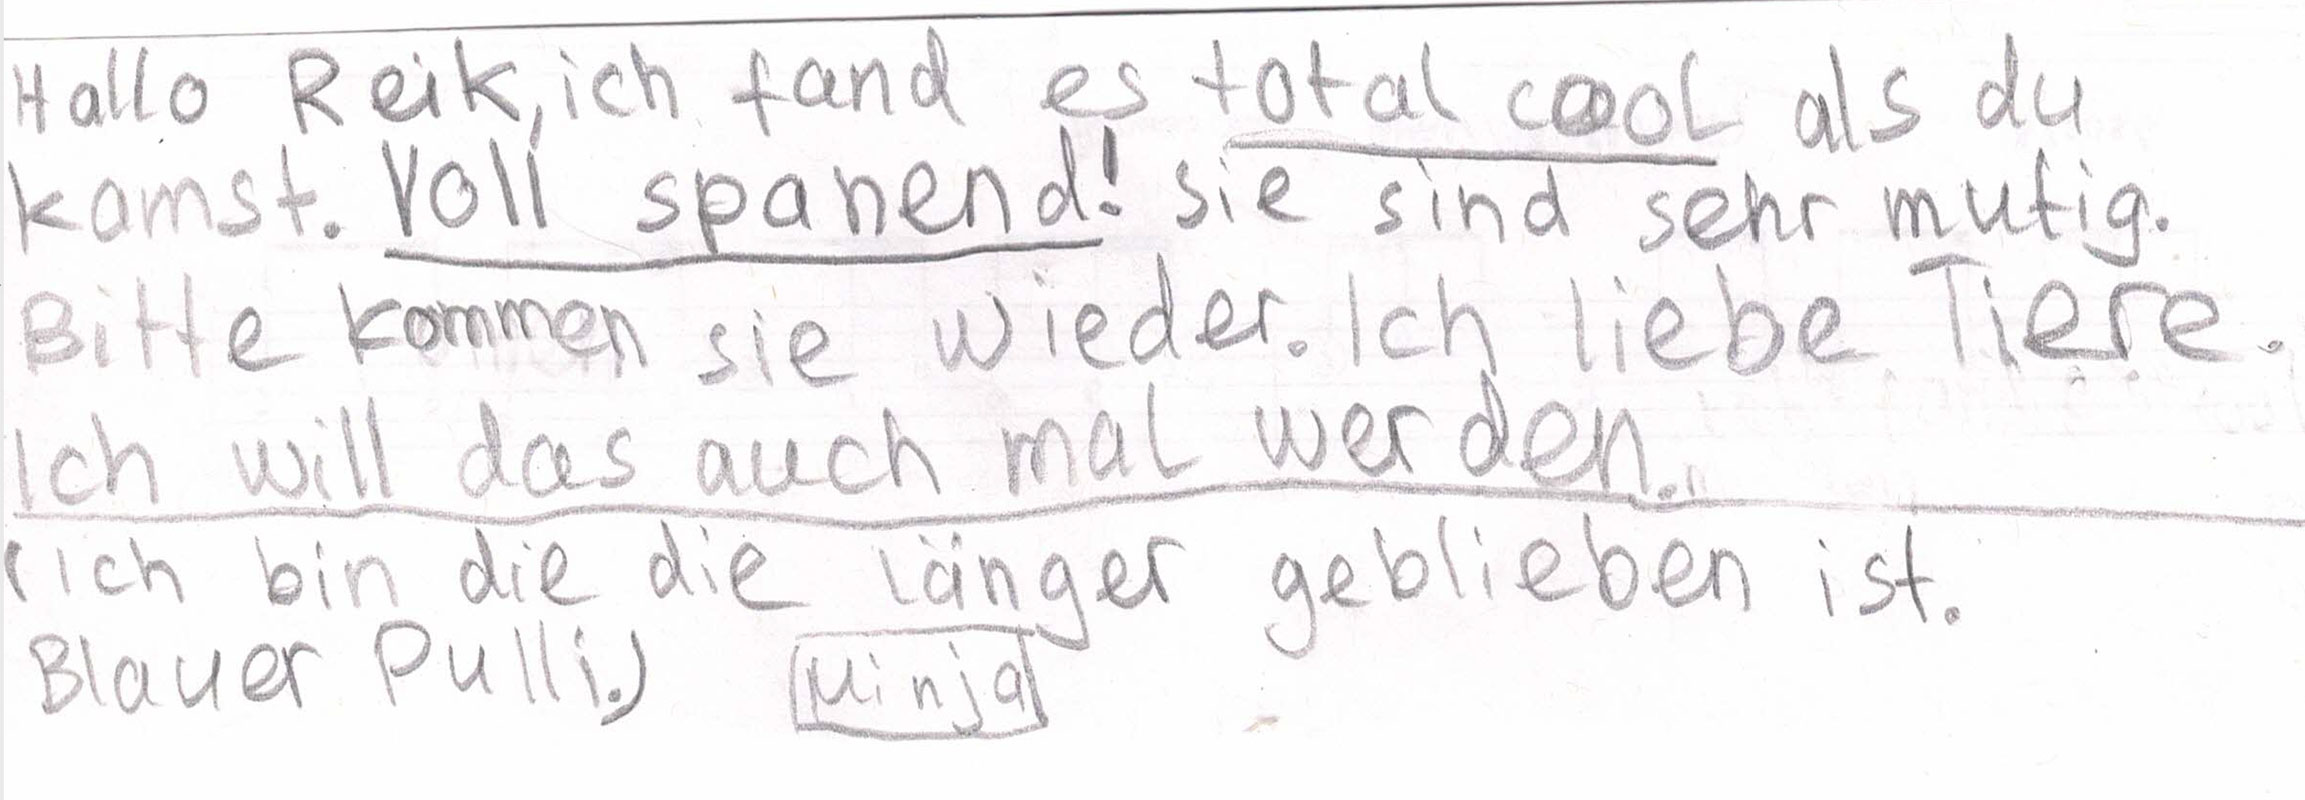 Hallo Reik, ich fand es total cool als du
kamst. Voll spanend! sie sind sehr mutig.
Bitte kommen sie wieder. Ich liebe Tiere.
Ich will das auch mal werden.
(Ich bin die die länger geblieben ist.
Blauer Pulli.) Minja